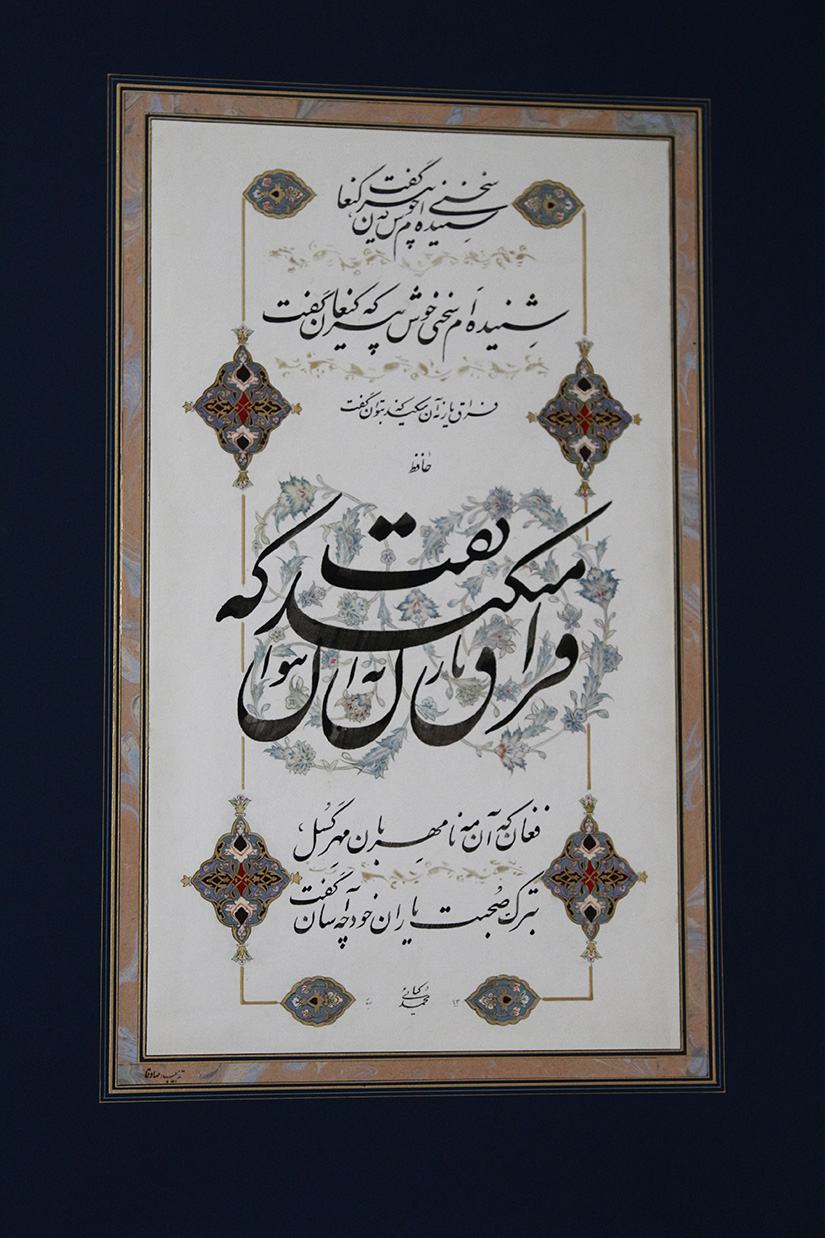 شنیده‌ام سخنی خوش که پیر کنعان گفت
شنیده‌ام سخنی خوش که پیر کنعان گفت
فراق یار نه آن میکند که بتوان گفت
حافظ
فراق یار نه آن میکند که بتوان گفت
فغان که آن مه نامهربان مهرگسل
بترک صحبت یاران خود چه آسان گفت
محمد
تذهیب